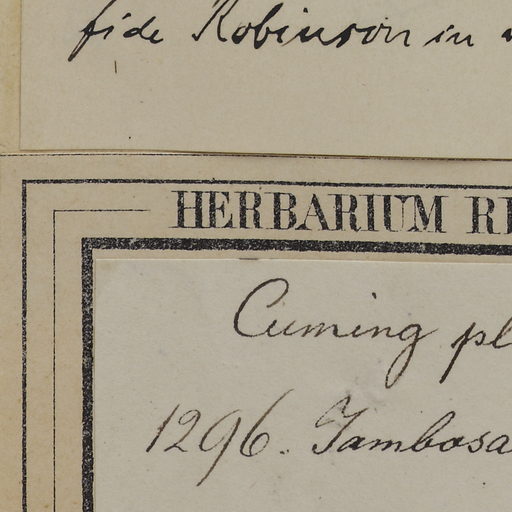 fide Robinson in
HERBARIUM
Cuming pl
1296. Jambosa